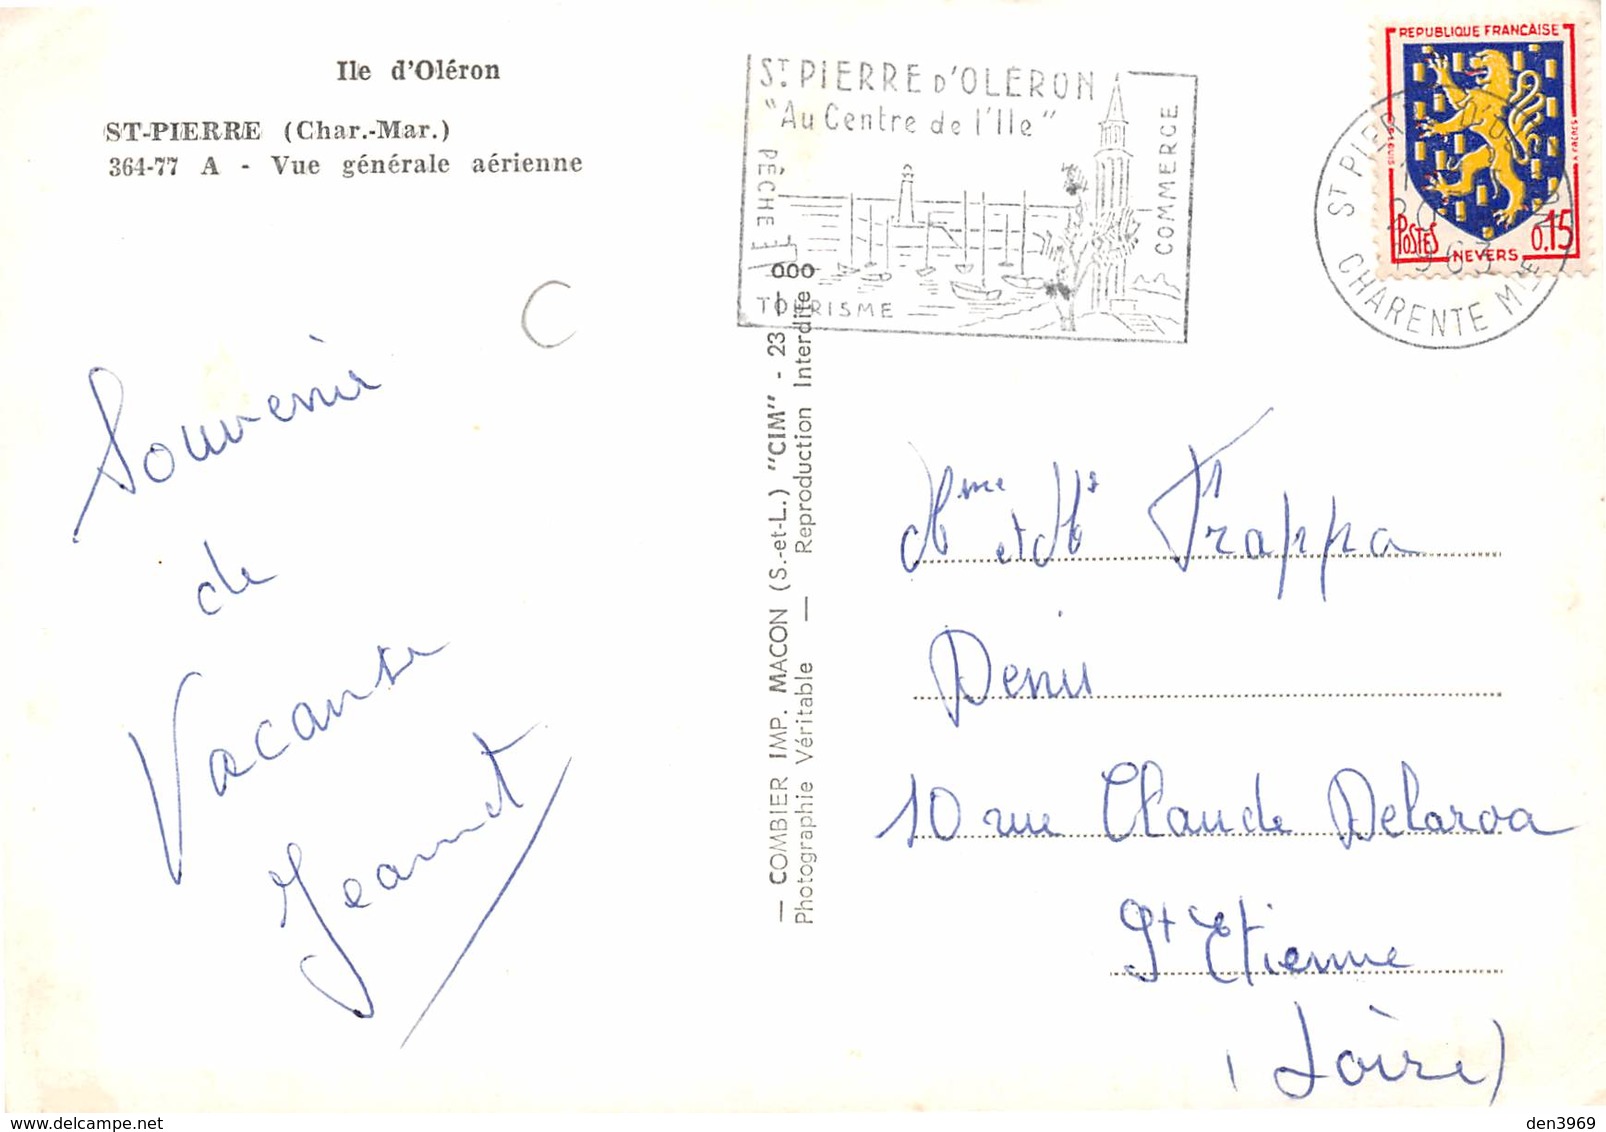 Ile d'Oléron
ST-PIERRE (Char.-Mar.)
364-77 A - Vue générale aérienne
C
Souvenir
de
Vacanse
Jeannot
ST. PIERRE D'OLERON
"Au Centre de l'Ile"
PÊCHE
COMMERCE
TOURISME
REPUBLIQUE FRANÇAISE
POSTES
0,15
NEVERS
ST PIERRE
20
1963
CHARENTE MME
— COMBIER IMP. MACON (S.-et-L.) "CIM" - 23 — 000
Photographie Véritable — Reproduction Interdite
Mme et Mr Frappa
Denis
10 rue Claude Delaroa
St Etienne
(Loire)
den3969